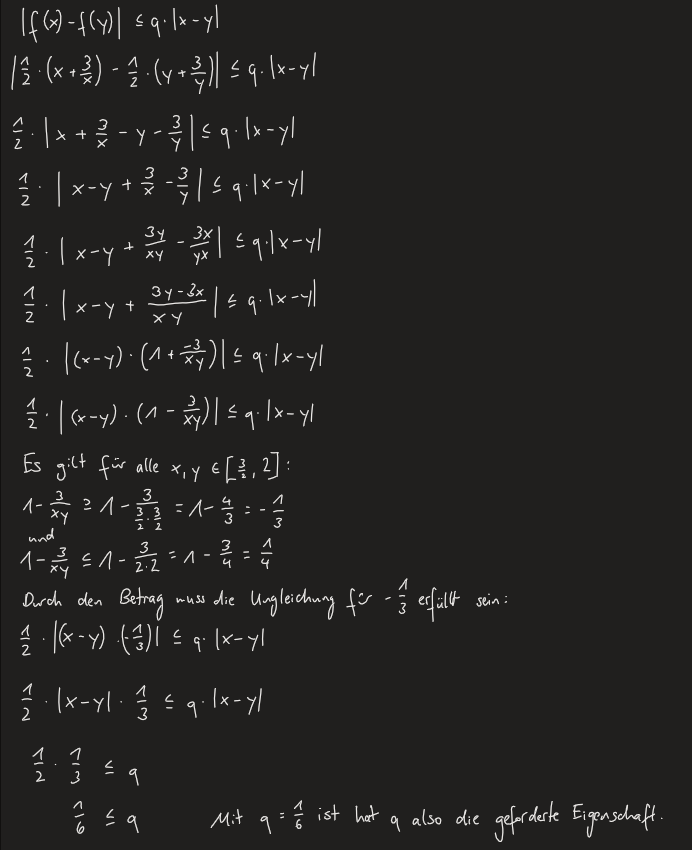 |f(x)-f(y)| ≤ q·|x-y|
|1/2·(x+3/x) - 1/2·(y+3/y)| ≤ q·|x-y|
1/2·|x + 3/x - y - 3/y| ≤ q·|x-y|
1/2·|x-y + 3/x - 3/y| ≤ q·|x-y|
1/2·|x-y + 3y/xy - 3x/yx| ≤ q·|x-y|
1/2·|x-y + (3y-3x)/xy| ≤ q·|x-y|
1/2·|(x-y)·(1 + -3/xy)| ≤ q·|x-y|
1/2·|(x-y)·(1 - 3/xy)| ≤ q·|x-y|
Es gilt für alle x,y ∈ [3/2, 2]:
1 - 3/xy ≥ 1 - 3/(3/2·3/2) = 1 - 4/3 = -1/3
und
1 - 3/xy ≤ 1 - 3/(2·2) = 1 - 3/4 = 1/4
Durch den Betrag muss die Ungleichung für -1/3 erfüllt sein:
1/2·|(x-y)·(-1/3)| ≤ q·|x-y|
1/2·|x-y|·1/3 ≤ q·|x-y|
1/2·1/3 ≤ q
1/6 ≤ q Mit q = 1/6 ist hat q also die geforderte Eigenschaft.